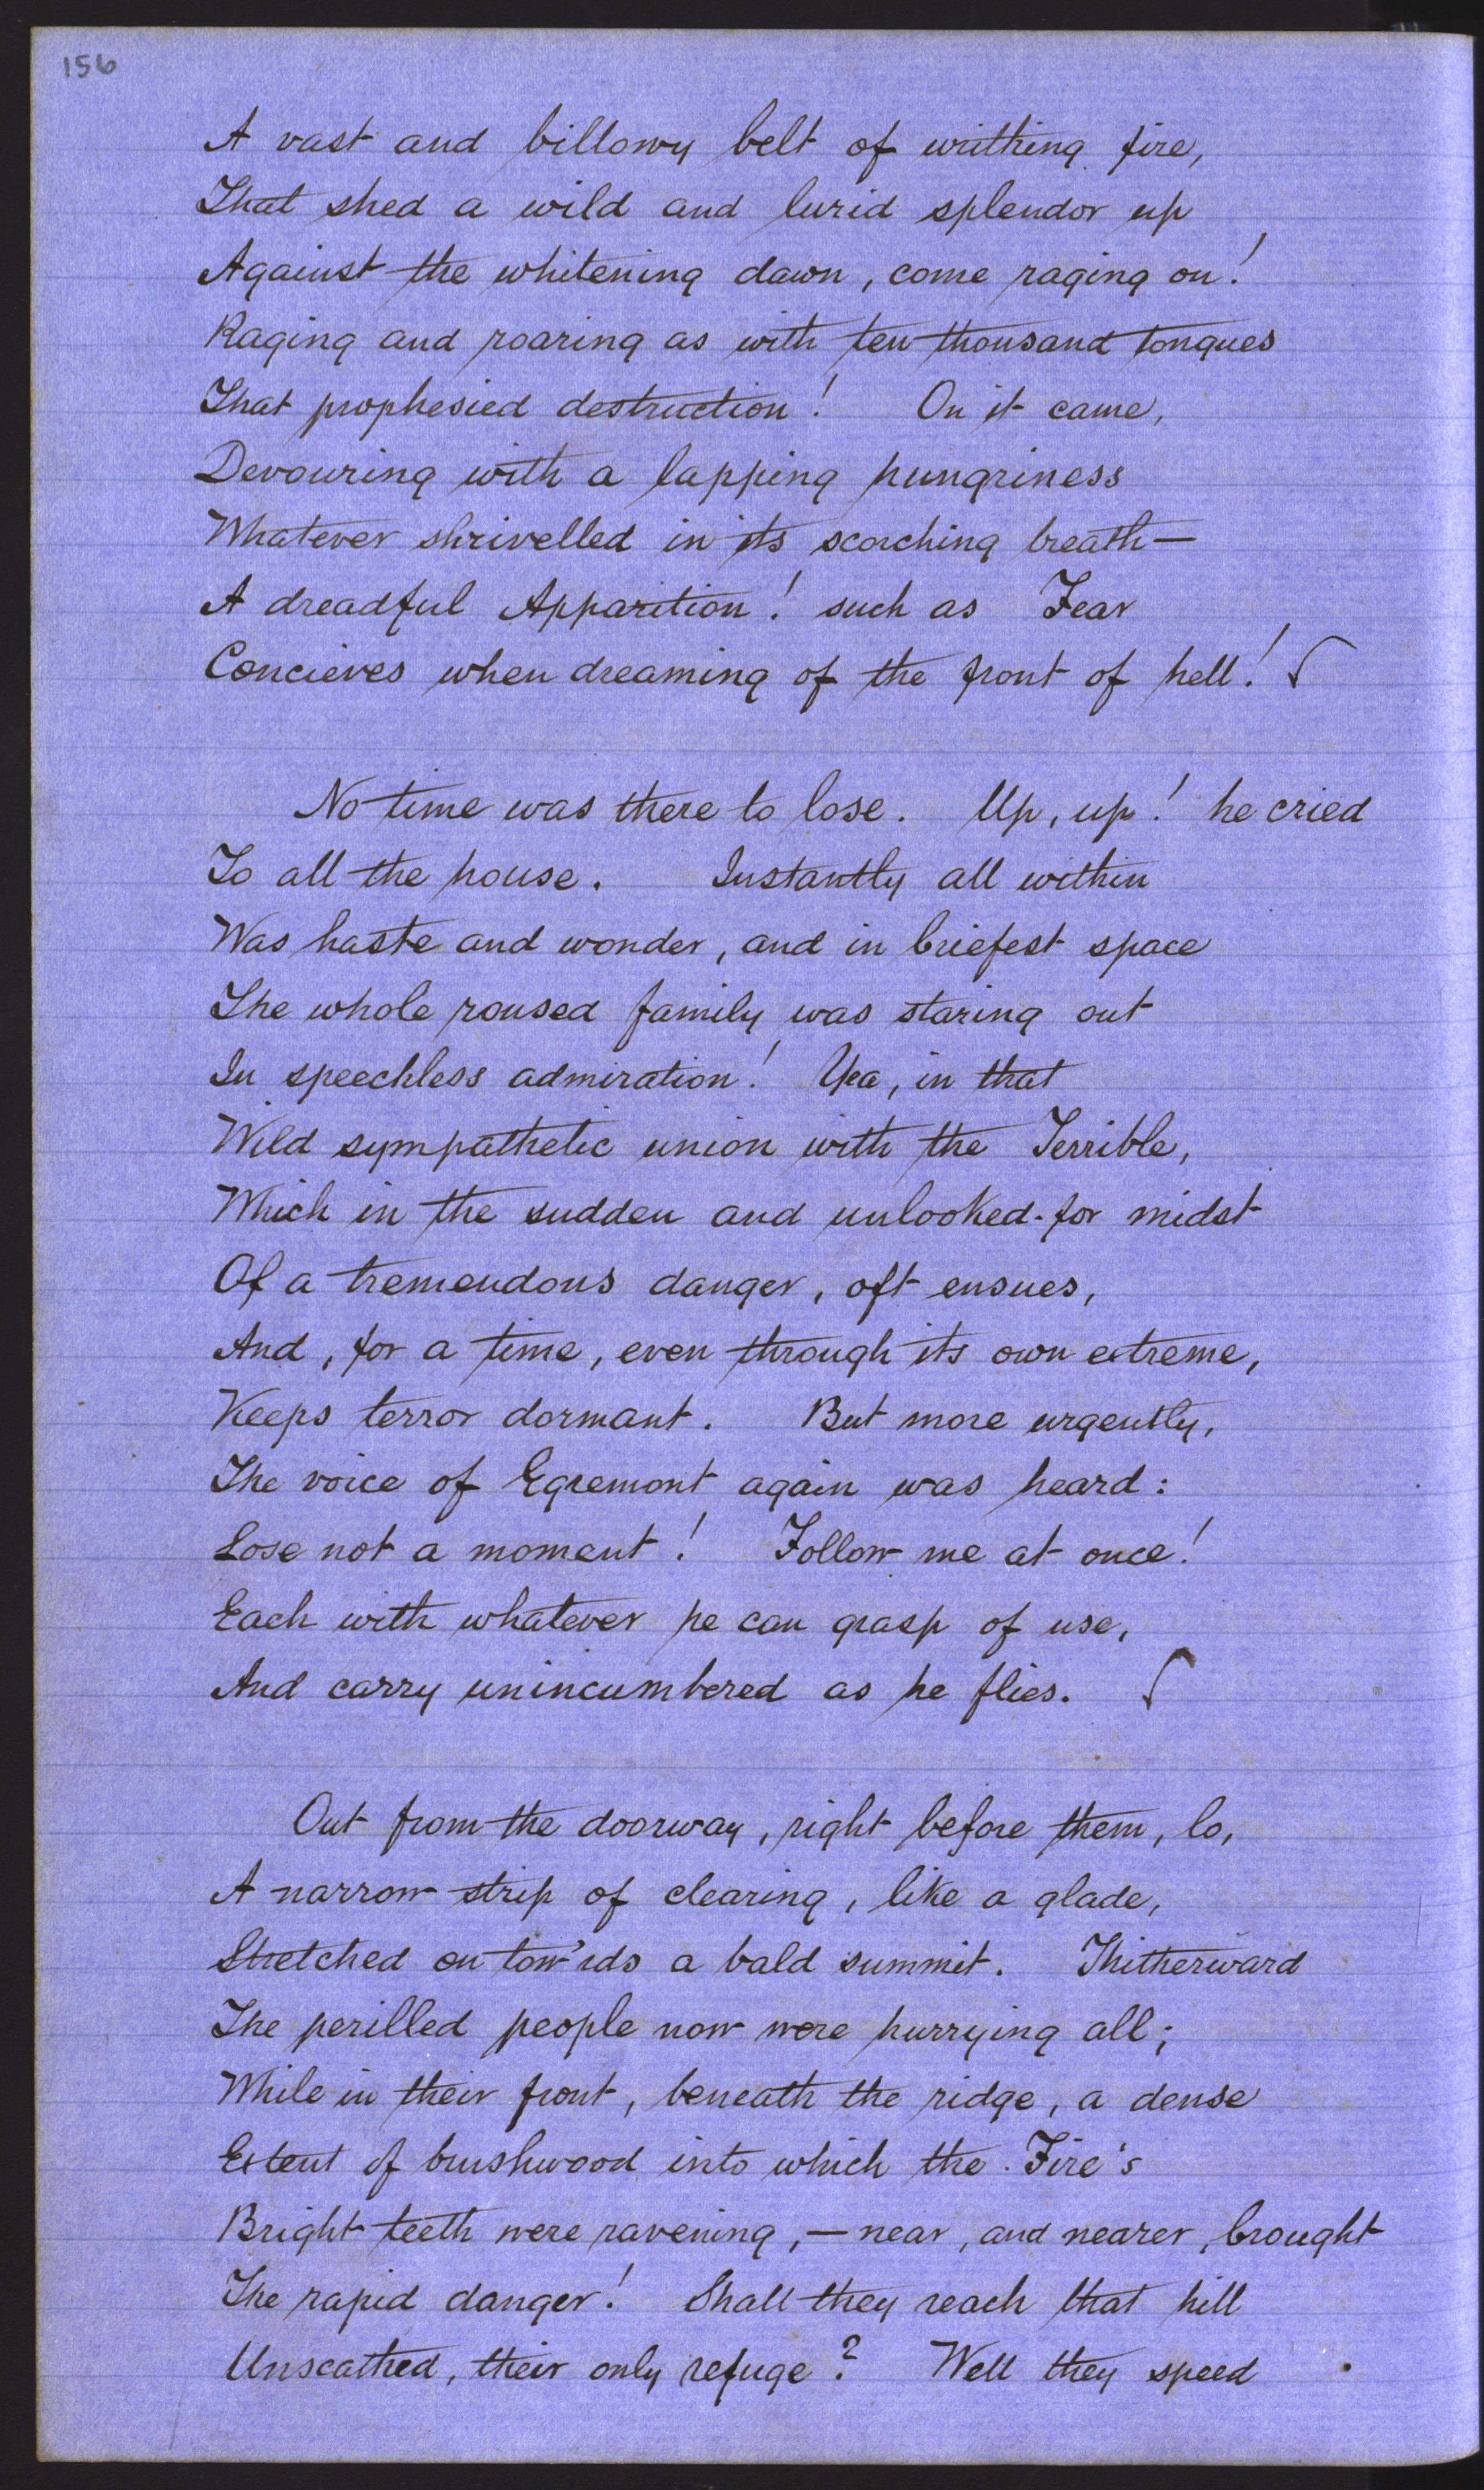 156
A vast and billowy belt of writhing fire,
That shed a wild and lurid splendor up
Against the whitening dawn, come raging on!
Raging and roaring as with ten thousand tongues
That prophesied destruction! On it came,
Devouring with a lapping hungriness
Whatever shrivelled in its scorching breath—
A dreadful Apparition! such as Fear
Concieves when dreaming of the front of hell!
No time was there to lose. Up, up! he cried
To all the house. Instantly all within
Was haste and wonder, and in briefest space
The whole roused family was staring out
In speechless admiration! Yea, in that
Wild sympathetic union with the Terrible,
Which in the sudden and unlooked-for midst
Of a tremendous danger, oft ensues,
And, for a time, even through its own extreme,
Keeps terror dormant. But more urgently,
The voice of Egremont again was heard:
Lose not a moment! Follow me at once!
Each with whatever he can grasp of use,
And carry unincumbered as he flies.
Out from the doorway, right before them, lo,
A narrow strip of clearing, like a glade,
Stretched on tow'rds a bald summit. Thitherward
The perilled people now were hurrying all;
While in their front, beneath the ridge, a dense
Extent of brushwood into which the Fire's
Bright teeth were ravening,—near, and nearer, brought
The rapid danger! Shall they reach that hill
Unscathed, their only refuge? Well they speed